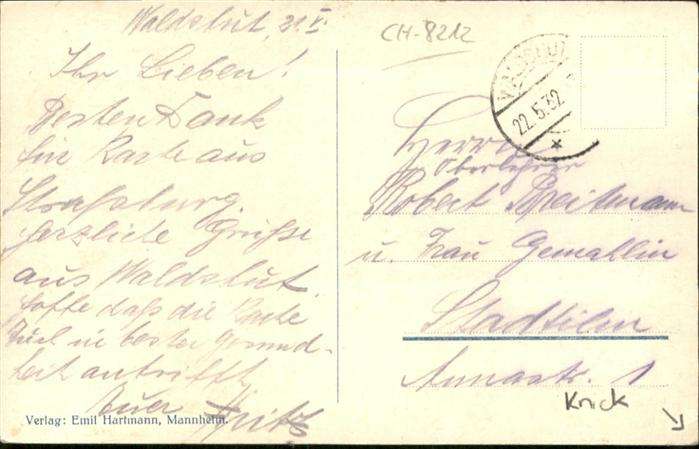 Waldshut, 21. V.
Ihr Lieben!
Besten Dank
für Karte aus
Straßburg.
herzliche Grüsse
aus Waldshut.
hoffe daß die Karte
Euch in bester Gesund-
heit antrifft
Euer Fritz
Verlag: Emil Hartmann, Mannheim.
CH-8212
WALDSHUT
22.5.32
Herrn
Oberlehrer
Robert Breitmann
u. Frau Gemahlin
Stadtilm
Annastr. 1
Knick